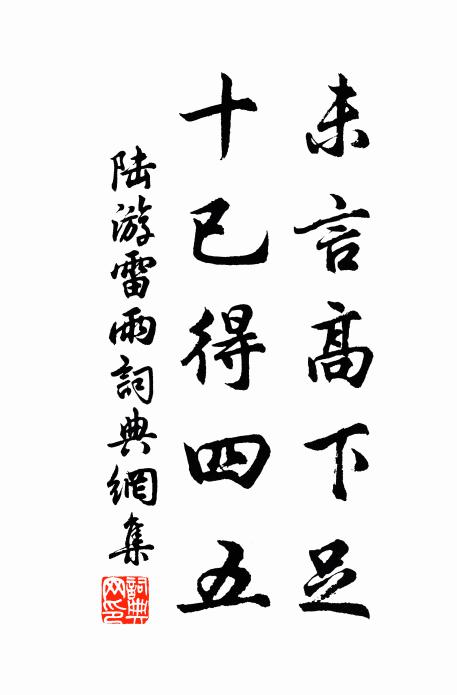 未言高下足
十已得四五
陸游雷雨詞典網集
詞典網印